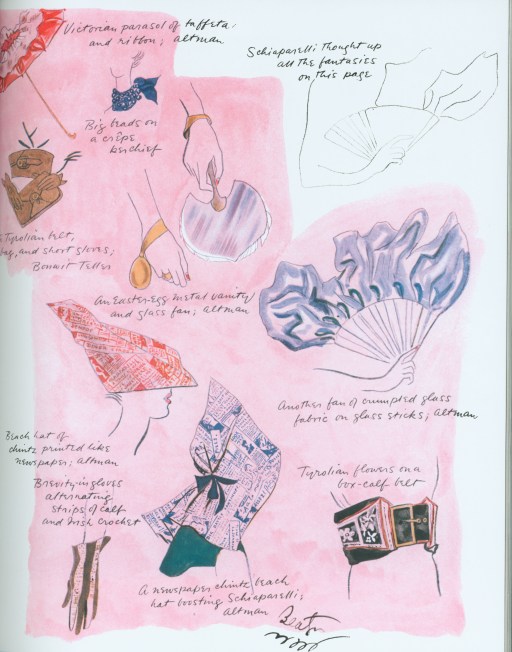 Victorian parasol of taffeta,
and ribbon; Altman
Schiaparelli thought up
all the fantasies
on this page
Big beads on
a crêpe
kerchief
Tyrolian belt,
and short gloves;
Bonwit Teller
An Easter-egg metal vanity
and glass fan; Altman
Another fan of crumpled glass
fabric on glass sticks; Altman
Beach hat of
chintz printed like
newspaper; Altman
Brevity in gloves
alternating
strips of calf
and Irish crochet
Tyrolian flowers on a
box-calf belt
A newspaper chintz beach
hat boosting Schiaparelli;
Altman
Beaton